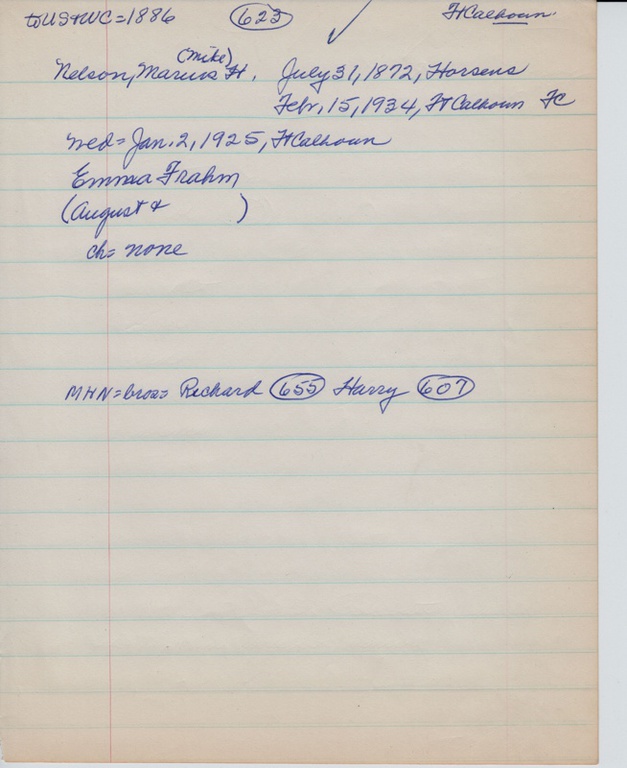 to US+WC=1886 623 Ft Calhoun
(Mike)
Nelson, Marius H. July 31, 1872, Horsens
Febr, 15, 1934, Ft Calhoun FC
med= Jan. 2, 1925, Ft Calhoun
Emma Frahm
(August + )
ch= none
MHN=bros= Richard 655 Harry 607